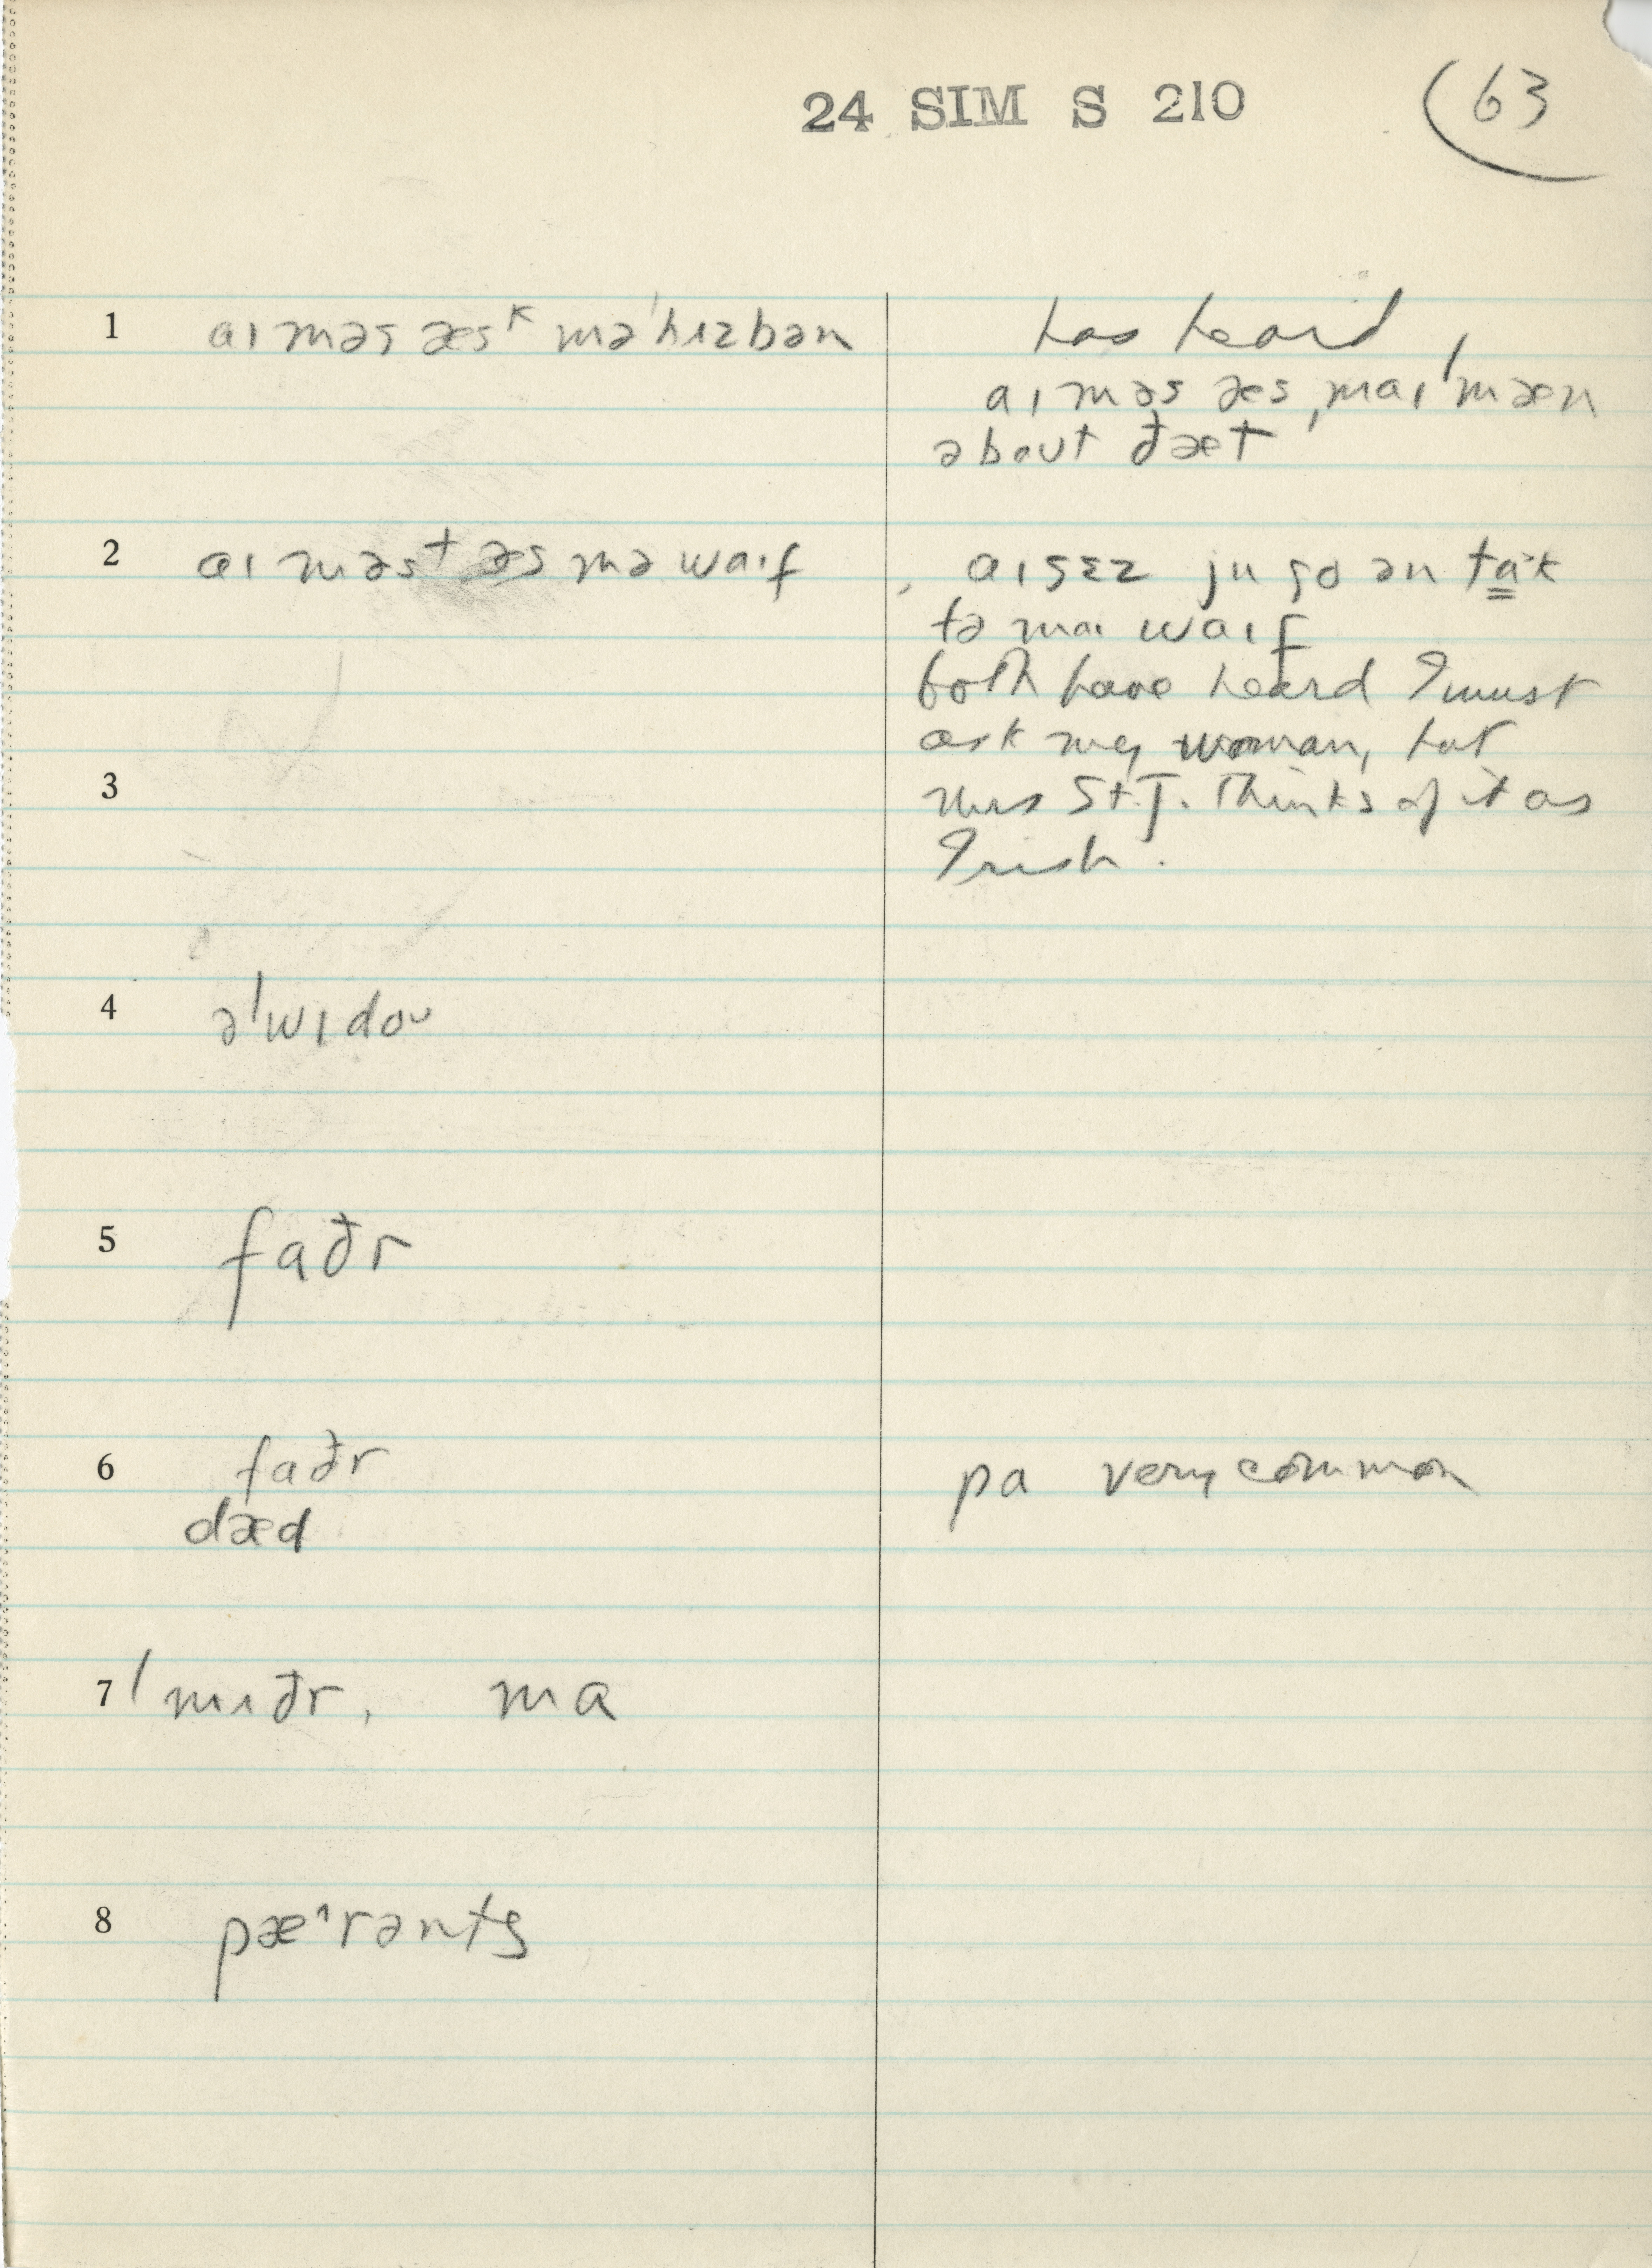 24 SIM S 210
63
1 aɪ məs æsᵏ mə ˈhʌzbən
has heard
aɪ məs æs, maɪ ˈmæn
about ðæt
2 aɪ məsᵗ əs mə waɪf
aɪ sɛz ju go ən tak
tə maɪ waɪf
both have heard I must
ask my woman, but
3
Mrs St.J. thinks of it as
Irish.
4 əˈwɪdoᴜ
5 faðr
6 faðr
pa very common
dæd
7 ˈmʌðr, ma
8 pæ^rənts